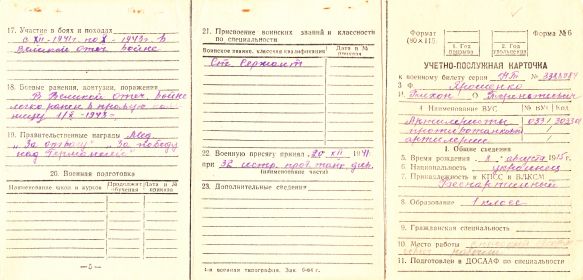 17. Участие в боях и походах
с XII-1941г. по X-1943г. в
Великой Отеч. войне
18. Боевые ранения, контузии, поражения
В Великой Отеч. войне
легко ранен в правую
1943г.
19. Правительственные награды Мед.
"За отвагу" "За победу
над Германией"
20. Военная подготовка
Наименование школ и курсов
Продолжит. обучения
Дата и № приказа
— 5 —
21. Присвоение воинских званий и классности
по специальности
Воинское звание, классная квалификация
Дата и № приказа
Сержант
22. Военную присягу принял „20" XII 1941
при 32
(наименование части)
23. Дополнительные сведения
1-я военная типография. Зак. 6-64 г.
Формат
(80×11
Форма № 6
1. Год призыва
2. Год увольнения
УЧЕТНО-ПОСЛУЖНАЯ КАРТОЧКА
к военному билету серии
3. Ф. Хроменко
И. Тихон О. Терентьевич
4 Наименование ВУС
№ ВУС
Код
Артиллеристы
противотанковой
артиллерии
I. Общие сведения
5. Время рождения августа 1915г.
6. Национальность украинец
7. Принадлежность к КПСС и ВЛКСМ
Беспартийный
8. Образование 1 класс
9. Гражданская специальность
10. Место работы
11. Подготовлен в ДОСААФ по специальности